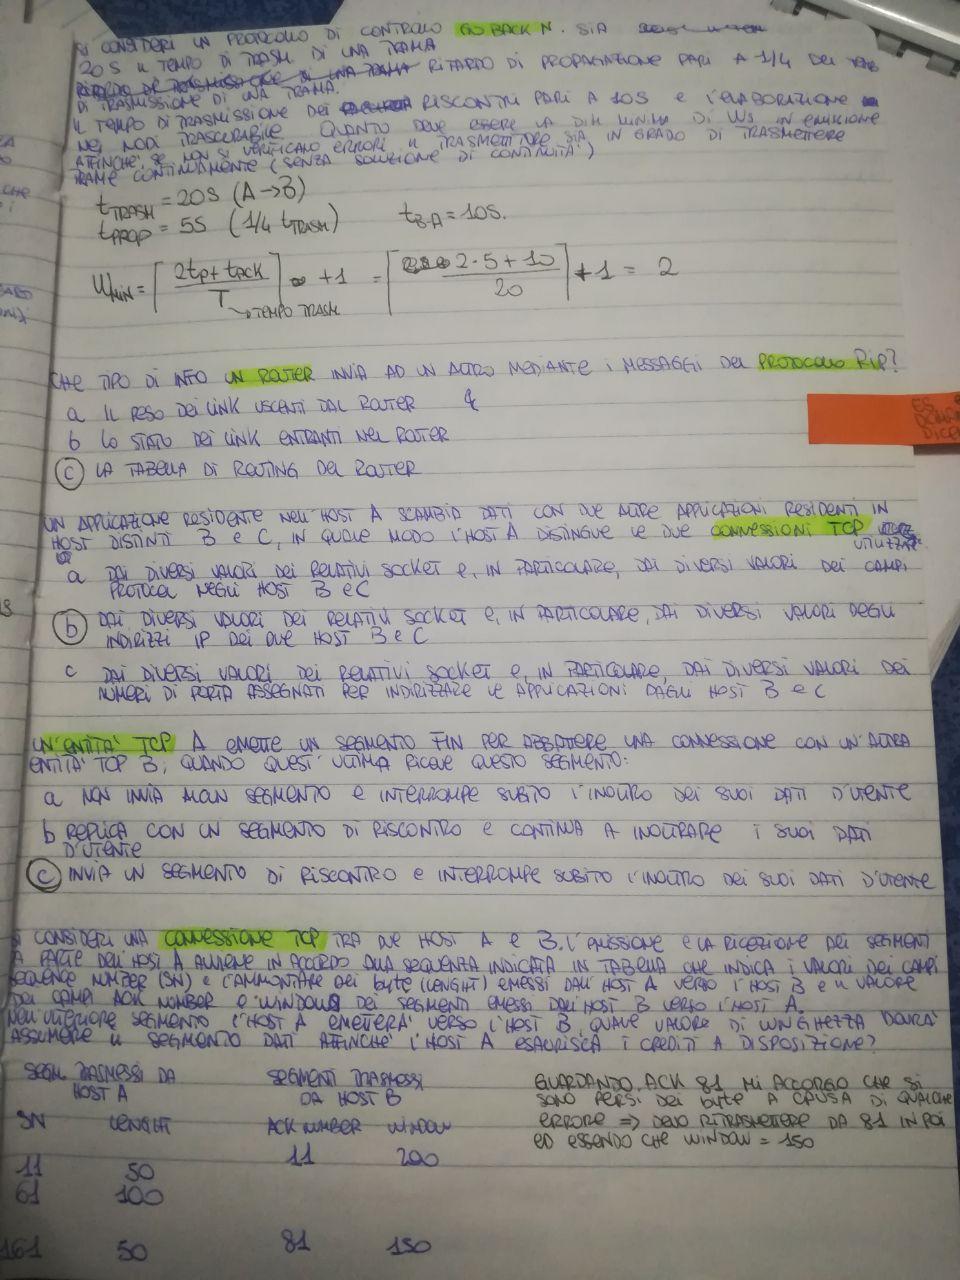 SI CONSIDERI UN PROTOCOLLO DI CONTROLLO GO BACK N. SIA
20 S IL TEMPO DI TRASM. DI UNA TRAMA
RITARDO DI PROPAGAZIONE PARI A 1/4 DEL
DI TRASMISSIONE DI UNA TRAMA.
IL TEMPO DI TRASMISSIONE DEI RISCONTRI PARI A 10S E L'ELABORAZIONE
NEI NODI TRASCURABILE QUANTO DEVE ESSERE LA DIM MINIMA DI WS IN EMISSIONE
AFFINCHE', SE NON SI VERIFICANO ERRORI IL TRASMETTITORE SIA IN GRADO DI TRASMETTERE
TRAME CONTINUAMENTE (SENZA SOLUZIONE DI CONTINUITA')
tTRASM = 20S (A→B)
tPROP = 5S (1/4 tTRASM) tB-A = 10S.
WMIN = ⌈ 2tp + tACK / T ⌉ +1 = ⌈ 2·5+10 / 20 ⌉ +1 = 2
↳TEMPO TRASM
CHE TIPO DI INFO UN ROUTER INVIA AD UN ALTRO MEDIANTE I MESSAGGI DEL PROTOCOLLO RIP?
a IL PESO DEI LINK USCENTI DAL ROUTER
b LO STATO DEI LINK ENTRANTI NEL ROUTER
c LA TABELLA DI ROUTING DEL ROUTER
UN APPLICAZIONE RESIDENTE NELL'HOST A SCAMBIA DATI CON DUE ALTRE APPLICAZIONI RESIDENTI IN
HOST DISTINTI B E C, IN QUALE MODO L'HOST A DISTINGUE LE DUE CONNESSIONI TCP
a DAI DIVERSI VALORI DEI RELATIVI SOCKET E, IN PARTICOLARE, DAI DIVERSI VALORI DEI CAMPI
PROTOCOL NEGLI HOST B E C
b DAI DIVERSI VALORI DEI RELATIVI SOCKET E, IN PARTICOLARE, DAI DIVERSI VALORI DEGLI
INDIRIZZI IP DEI DUE HOST B E C
c DAI DIVERSI VALORI DEI RELATIVI SOCKET E, IN PARTICOLARE, DAI DIVERSI VALORI DEI
NUMERI DI PORTA ASSEGNATI PER INDIRIZZARE LE APPLICAZIONI DAGLI HOST B E C
UN'ENTITA' TCP A EMETTE UN SEGMENTO FIN PER ABBATTERE UNA CONNESSIONE CON UN'ALTRA
ENTITA' TCP B; QUANDO QUEST'ULTIMA RICEVE QUESTO SEGMENTO:
a NON INVIA ALCUN SEGMENTO E INTERROMPE SUBITO L'INOLTRO DEI SUOI DATI D'UTENTE
b REPLICA CON UN SEGMENTO DI RISCONTRO E CONTINUA A INOLTRARE I SUOI DATI
D'UTENTE
c INVIA UN SEGMENTO DI RISCONTRO E INTERROMPE SUBITO L'INOLTRO DEI SUOI DATI D'UTENTE
SI CONSIDERI UNA CONNESSIONE TCP TRA DUE HOST A E B. L'EMISSIONE E LA RICEZIONE DEI SEGMENTI
A PARTE DELL'HOST A AVVIENE IN ACCORDO ALLA SEQUENZA INDICATA IN TABELLA CHE INDICA I VALORI DEI CAMPI
SEQUENCE NUMBER (SN) E L'AMMONTARE DEI BYTE (LENGHT) EMESSI DALL'HOST A VERSO L'HOST B E IL VALORE
DEI CAMPI ACK NUMBER E WINDOW DEI SEGMENTI EMESSI DALL'HOST B VERSO L'HOST A.
NELL'ULTERIORE SEGMENTO L'HOST A EMETTERA' VERSO L'HOST B, QUALE VALORE DI LUNGHEZZA DOVRA'
ASSUMERE IL SEGMENTO DATI AFFINCHE' L'HOST A ESAURISCA I CREDITI A DISPOSIZIONE?
SEGM. TRASMESSI DA SEGMENTI TRASMESSI GUARDANDO ACK 81 MI ACCORGO CHE SI
HOST A DA HOST B SONO PERSI DEI BYTE A CAUSA DI QUALCHE
SN LENGHT ACK NUMBER WINDOW ERRORE ⇒ DEVO RITRASMETTERE DA 81 IN POI
ED ESSENDO CHE WINDOW = 150
11 200
11 50
61 100
161 50 81 150